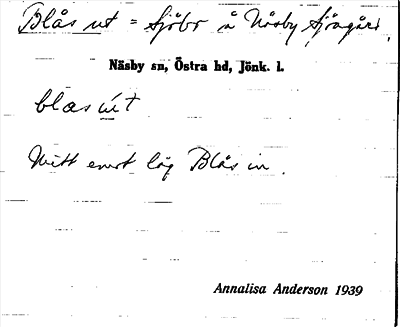 Blås ut = Sjöbr å Näsby Sjögård.
Näsby sn, Östra hd, Jönk. l.
blas út
Mitt emot låg Blås in.
Annalisa Anderson 1939